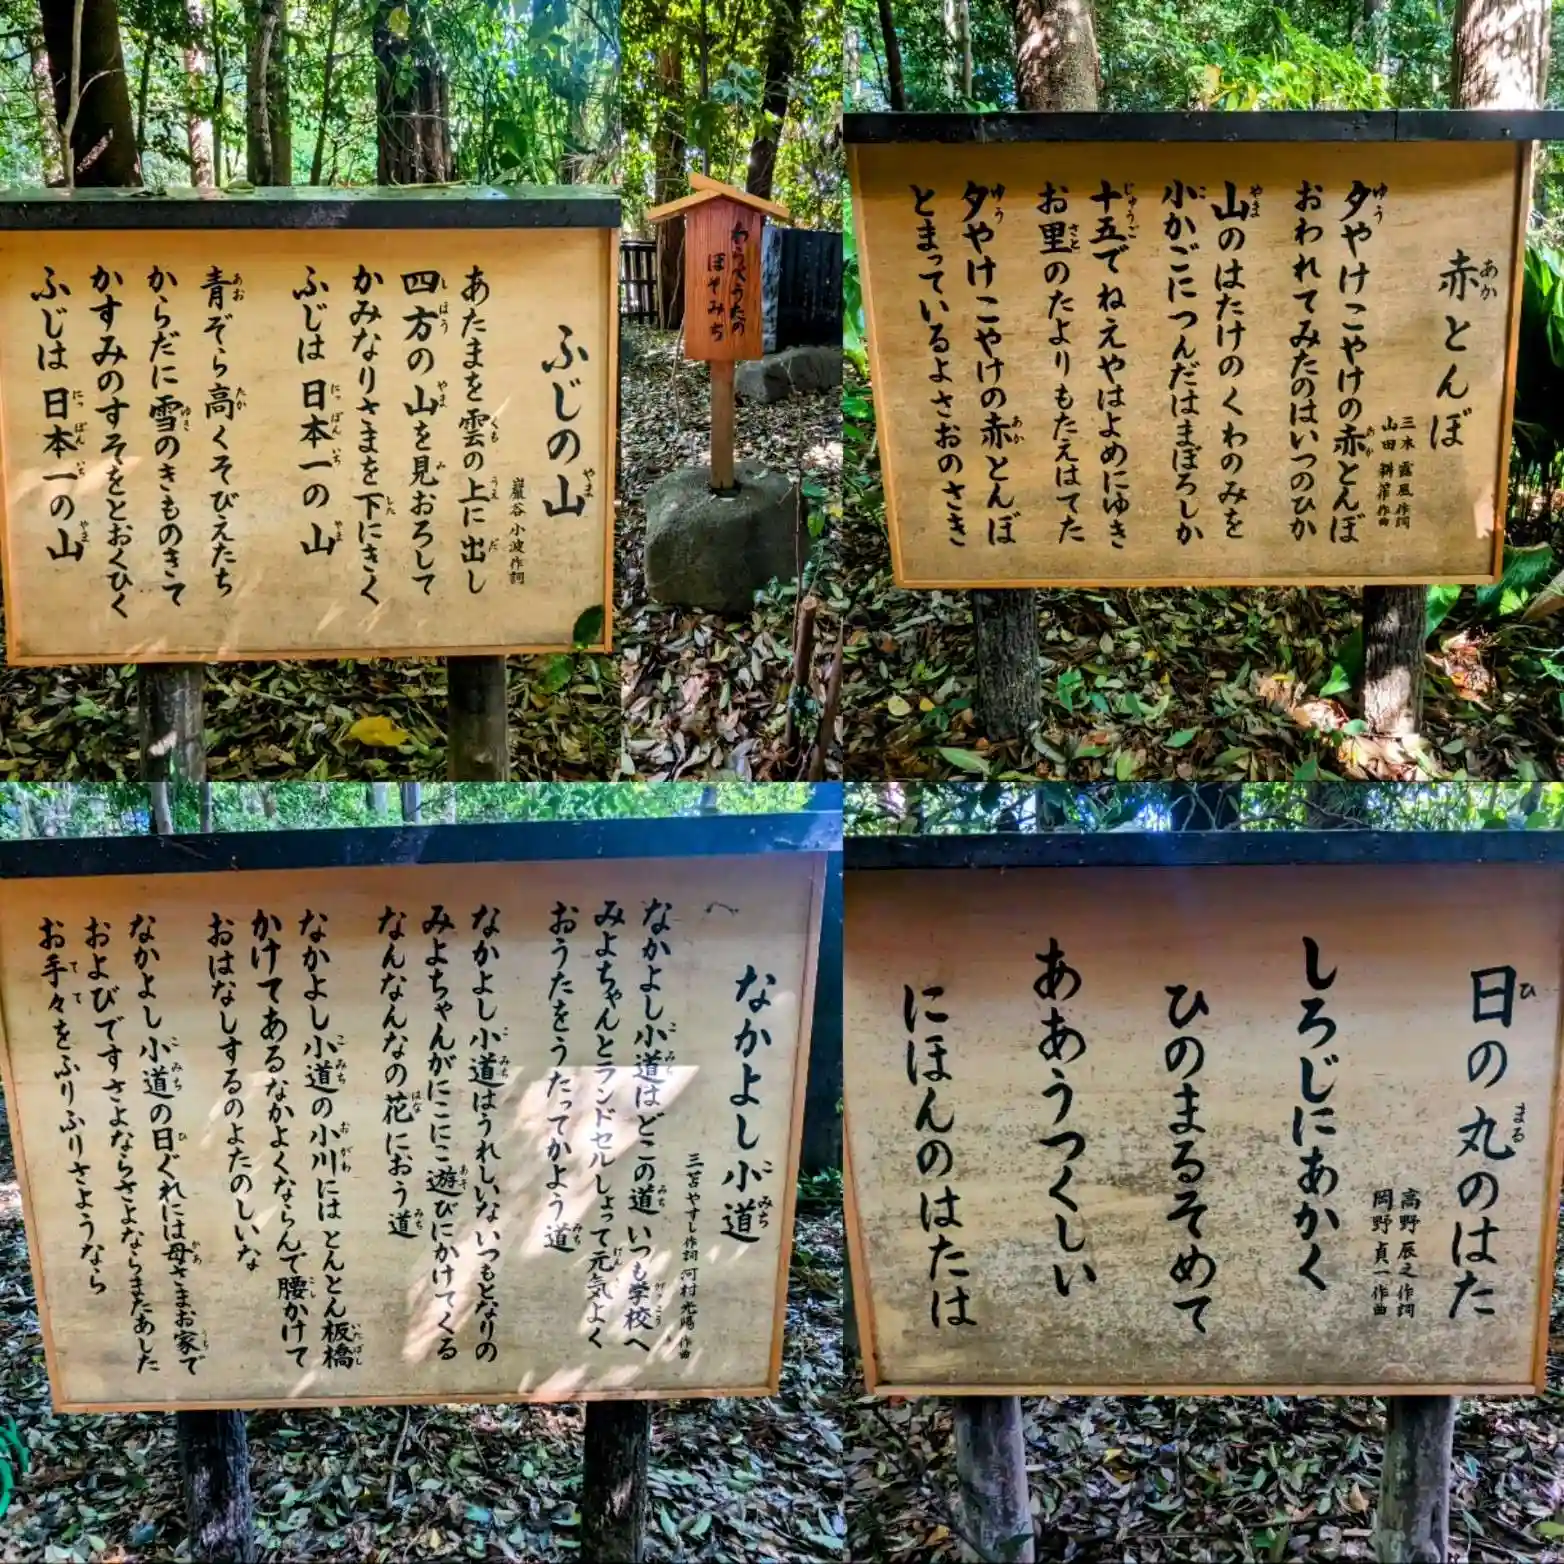 ふじの山
巌谷小波作詞
あたまを雲の上に出し
四方の山を見おろして
かみなりさまを下にきく
ふじは日本一の山
青ぞら高くそびえたち
からだに雪のきものきて
かすみのすそをとおくひく
ふじは日本一の山
わらべうたの
ほそみち
赤とんぼ
三木露風作詞
山田耕筰作曲
夕やけこやけの赤とんぼ
おわれてみたのはいつのひか
山のはたけのくわのみを
小かごにつんだはまぼろしか
十五でねえやはよめにゆき
お里のたよりもたえはてた
夕やけこやけの赤とんぼ
とまっているよさおのさき
なかよし小道
三苫やすし作詞 河村光陽作曲
なかよし小道はどこの道 いつも学校へ
みよちゃんとランドセルしょって元気よく
おうたをうたってかよう道
なかよし小道はうれしいないつもとなりの
みよちゃんがにこにこ遊びにかけてくる
なんなんなの花におう道
なかよし小道の小川にはとんとん板橋
かけてあるなかよくならんで腰かけて
おはなしするのよたのしいな
なかよし小道の日ぐれには母さまお家で
およびですさよならさよならまたあした
お手々をふりふりさようなら
日の丸のはた
高野辰之作詞
岡野貞一作曲
しろじにあかく
ひのまるそめて
ああうつくしい
にほんのはたは